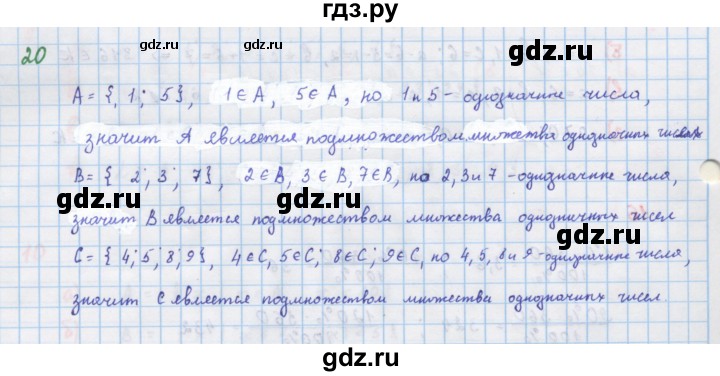 гдз.ру
20
gdz.ru gdz.ru gdz.ru
A = {, 1; 5}, 1 ∈ A, 5 ∈ A, но 1 и 5 - однозначные числа,
значит A является подмножеством множества однозначных чисел
gdz.ru gdz.ru
B = { 2; 3; 7}, 2 ∈ B, 3 ∈ B, 7 ∈ B, но 2, 3 и 7 - однозначные числа,
значит B является подмножеством множества однозначных чисел
gdz.ru gdz.ru gdz.ru
C = { 4; 5; 8; 9}, 4 ∈ C, 5 ∈ C; 8 ∈ C; 9 ∈ C, но 4, 5, 8 и 9 - однозначные числа,
значит C является подмножеством множества однозначных чисел.
gdz.ru gdz.ru
gdz.ru